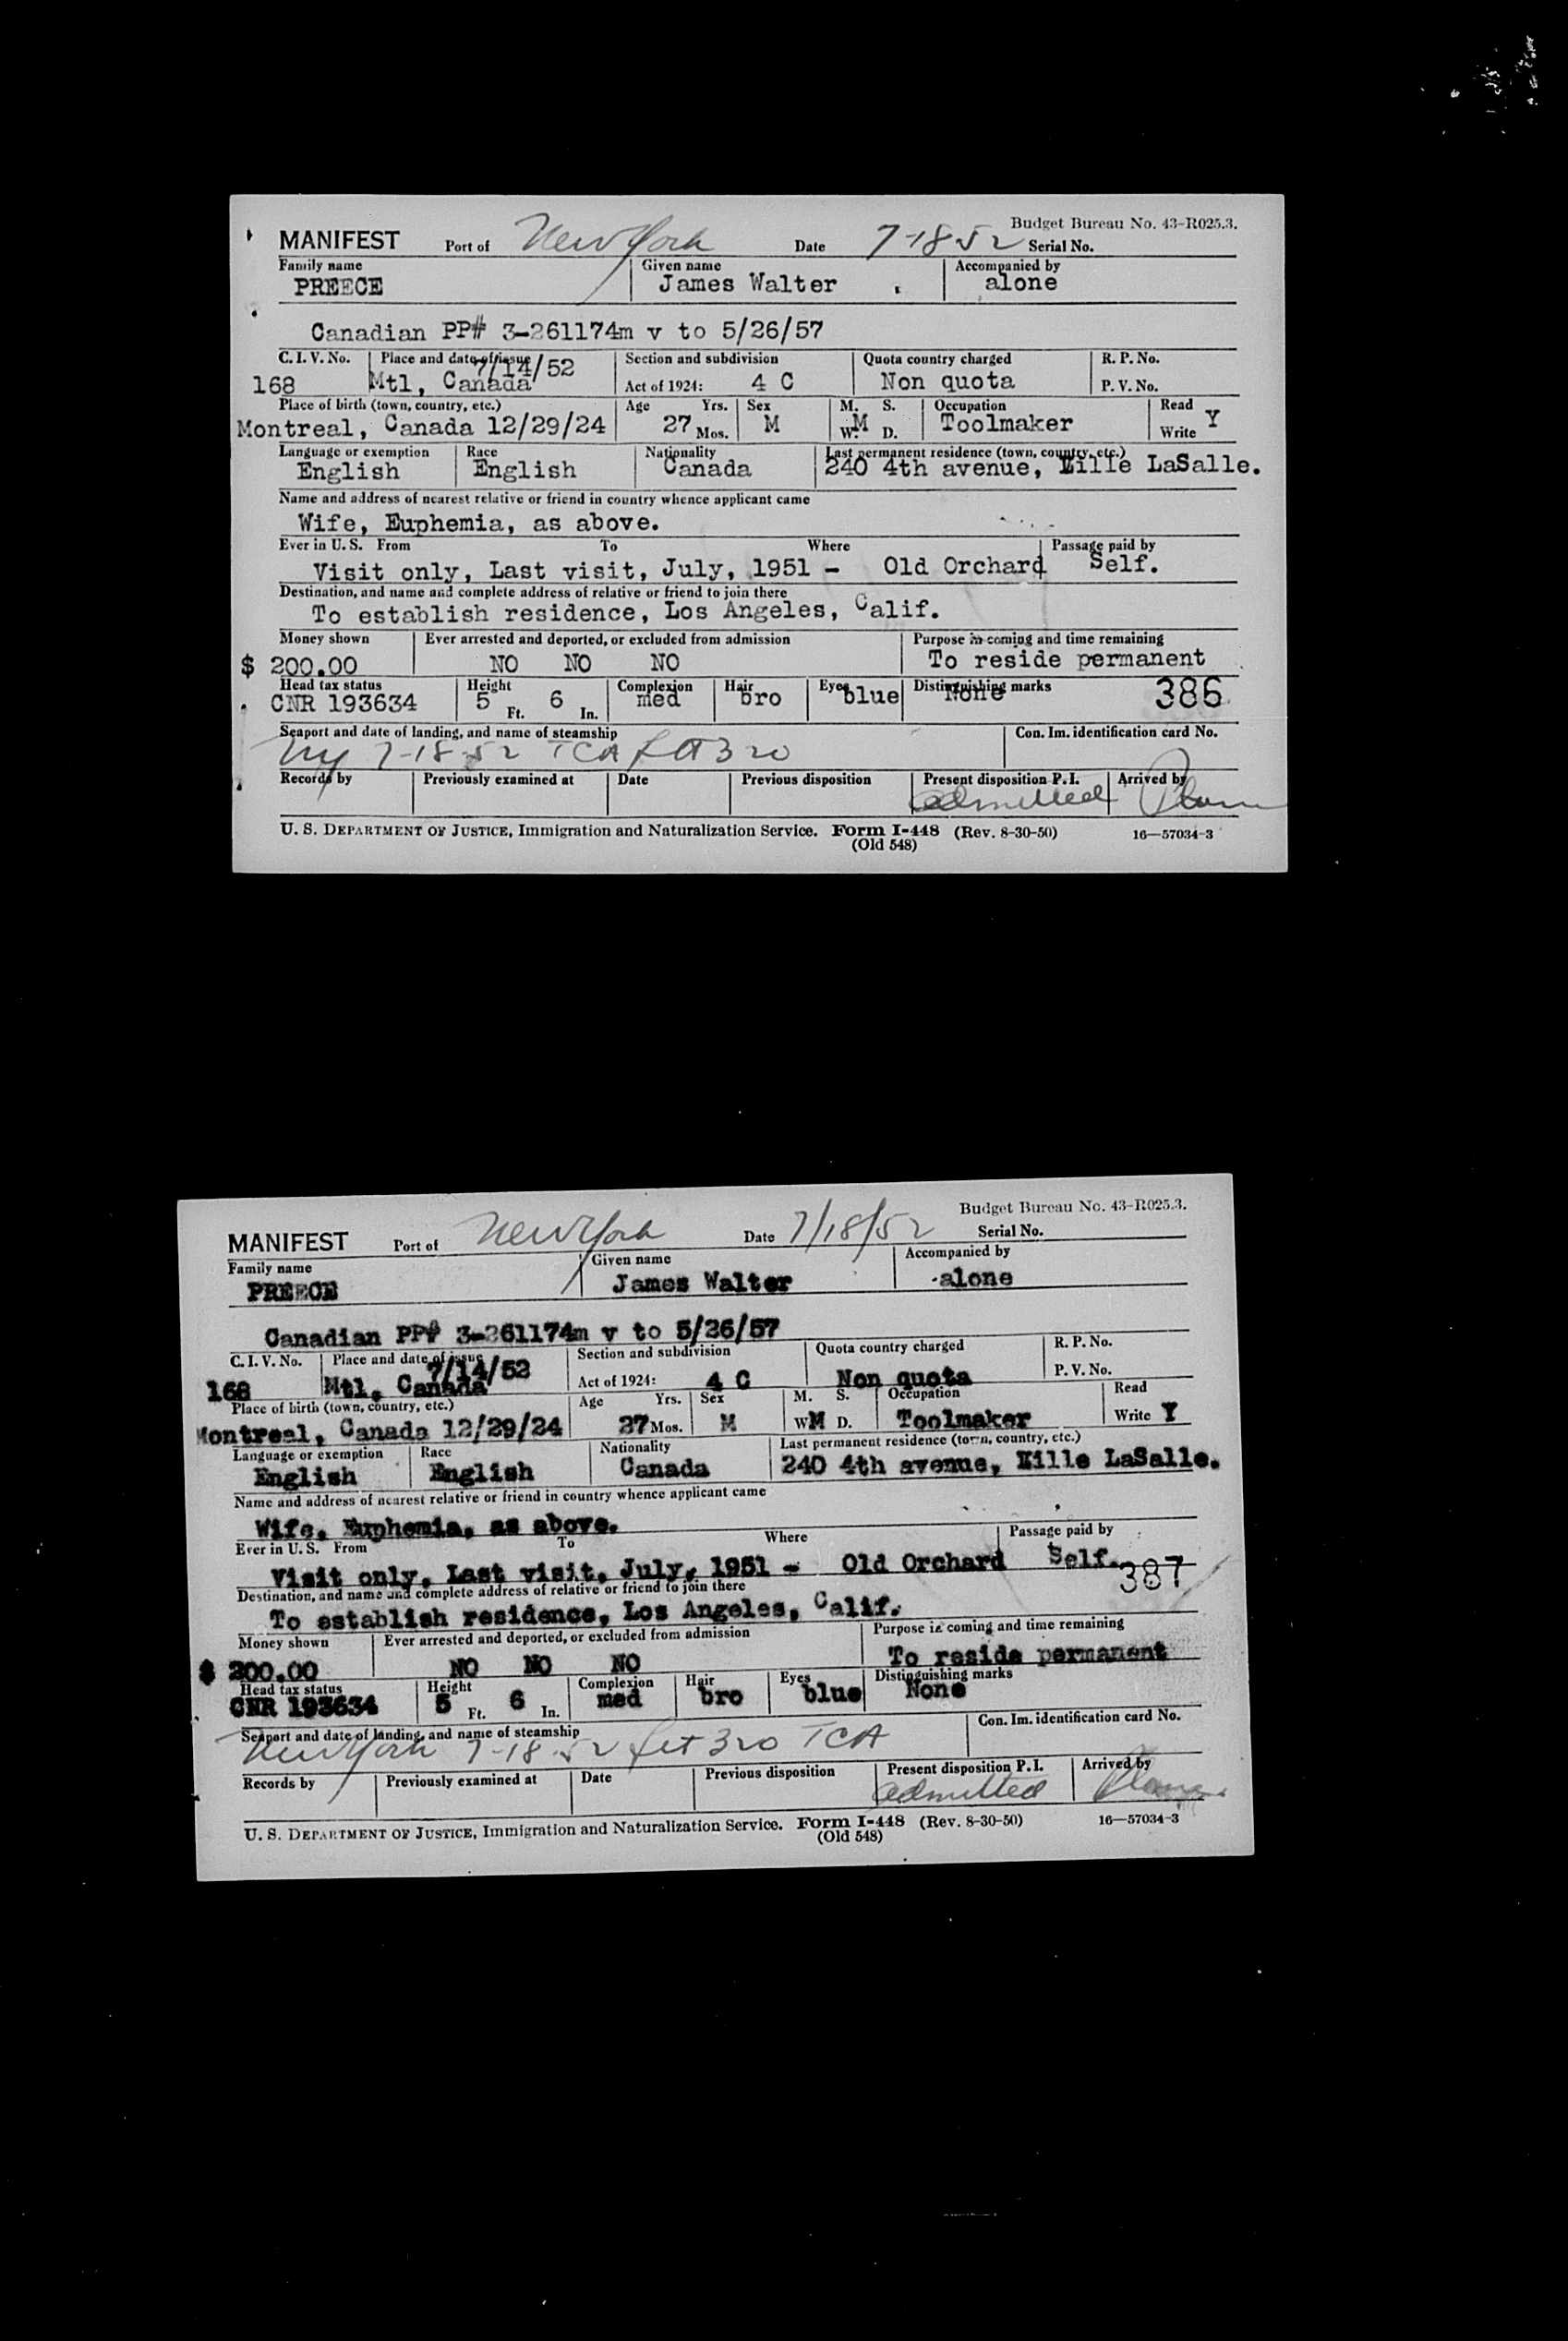 Budget Bureau No. 43-R025.3.
MANIFEST Port of New York Date 7-18-52 Serial No.
Family name Given name Accompanied by
PREECE James Walter alone
Canadian PP# 3-261174m v to 5/26/57
C. I. V. No. Place and date of issue Section and subdivision Quota country charged R. P. No.
7/14/52
168 Mtl, Canada Act of 1924: 4 C Non quota P. V. No.
Place of birth (town, country, etc.) Age Yrs. Sex M. S. Occupation Read
Montreal, Canada 12/29/24 27 Mos. M W. M D. Toolmaker Write Y
Language or exemption Race Nationality Last permanent residence (town, country, etc.)
English English Canada 240 4th avenue, Ville LaSalle.
Name and address of nearest relative or friend in country whence applicant came
Wife, Euphemia, as above.
Ever in U. S. From To Where Passage paid by
Visit only, Last visit, July, 1951 - Old Orchard Self.
Destination, and name and complete address of relative or friend to join there
To establish residence, Los Angeles, Calif.
Money shown Ever arrested and deported, or excluded from admission Purpose in coming and time remaining
$ 200.00 NO NO NO To reside permanent
Head tax status Height Complexion Hair Eyes Distinguishing marks
CNR 193634 5 Ft. 6 In. med bro blue None 386
Seaport and date of landing, and name of steamship Con. Im. identification card No.
NY 7-18-52 TCA flt 320
Records by Previously examined at Date Previous disposition Present disposition P. I. Arrived by
admitted
U. S. DEPARTMENT OF JUSTICE, Immigration and Naturalization Service. Form I-448 (Rev. 8-30-50) 16—57034-3
(Old 548)
Budget Bureau No. 43-R025.3.
MANIFEST Port of New York Date 7/18/52 Serial No.
Family name Given name Accompanied by
PREECE James Walter alone
Canadian PP# 3-261174m v to 5/26/57
C. I. V. No. Place and date of issue Section and subdivision Quota country charged R. P. No.
7/14/52
168 Mtl, Canada Act of 1924: 4 C Non quota P. V. No.
Place of birth (town, country, etc.) Age Yrs. Sex M. S. Occupation Read
Montreal, Canada 12/29/24 27 Mos. M W M D. Toolmaker Write Y
Language or exemption Race Nationality Last permanent residence (town, country, etc.)
English English Canada 240 4th avenue, Ville LaSalle.
Name and address of nearest relative or friend in country whence applicant came
Wife, Euphemia, as above.
Ever in U. S. From To Where Passage paid by
Visit only, Last visit, July, 1951 - Old Orchard Self.
387
Destination, and name and complete address of relative or friend to join there
To establish residence, Los Angeles, Calif.
Money shown Ever arrested and deported, or excluded from admission Purpose in coming and time remaining
$ 200.00 NO NO NO To reside permanent
Head tax status Height Complexion Hair Eyes Distinguishing marks
CNR 193634 5 Ft. 6 In. med bro blue None
Seaport and date of landing, and name of steamship Con. Im. identification card No.
New York 7-18-52 flt 320 TCA
Records by Previously examined at Date Previous disposition Present disposition P. I. Arrived by
admitted
U. S. DEPARTMENT OF JUSTICE, Immigration and Naturalization Service. Form I-448 (Rev. 8-30-50) 16—57034-3
(Old 548)